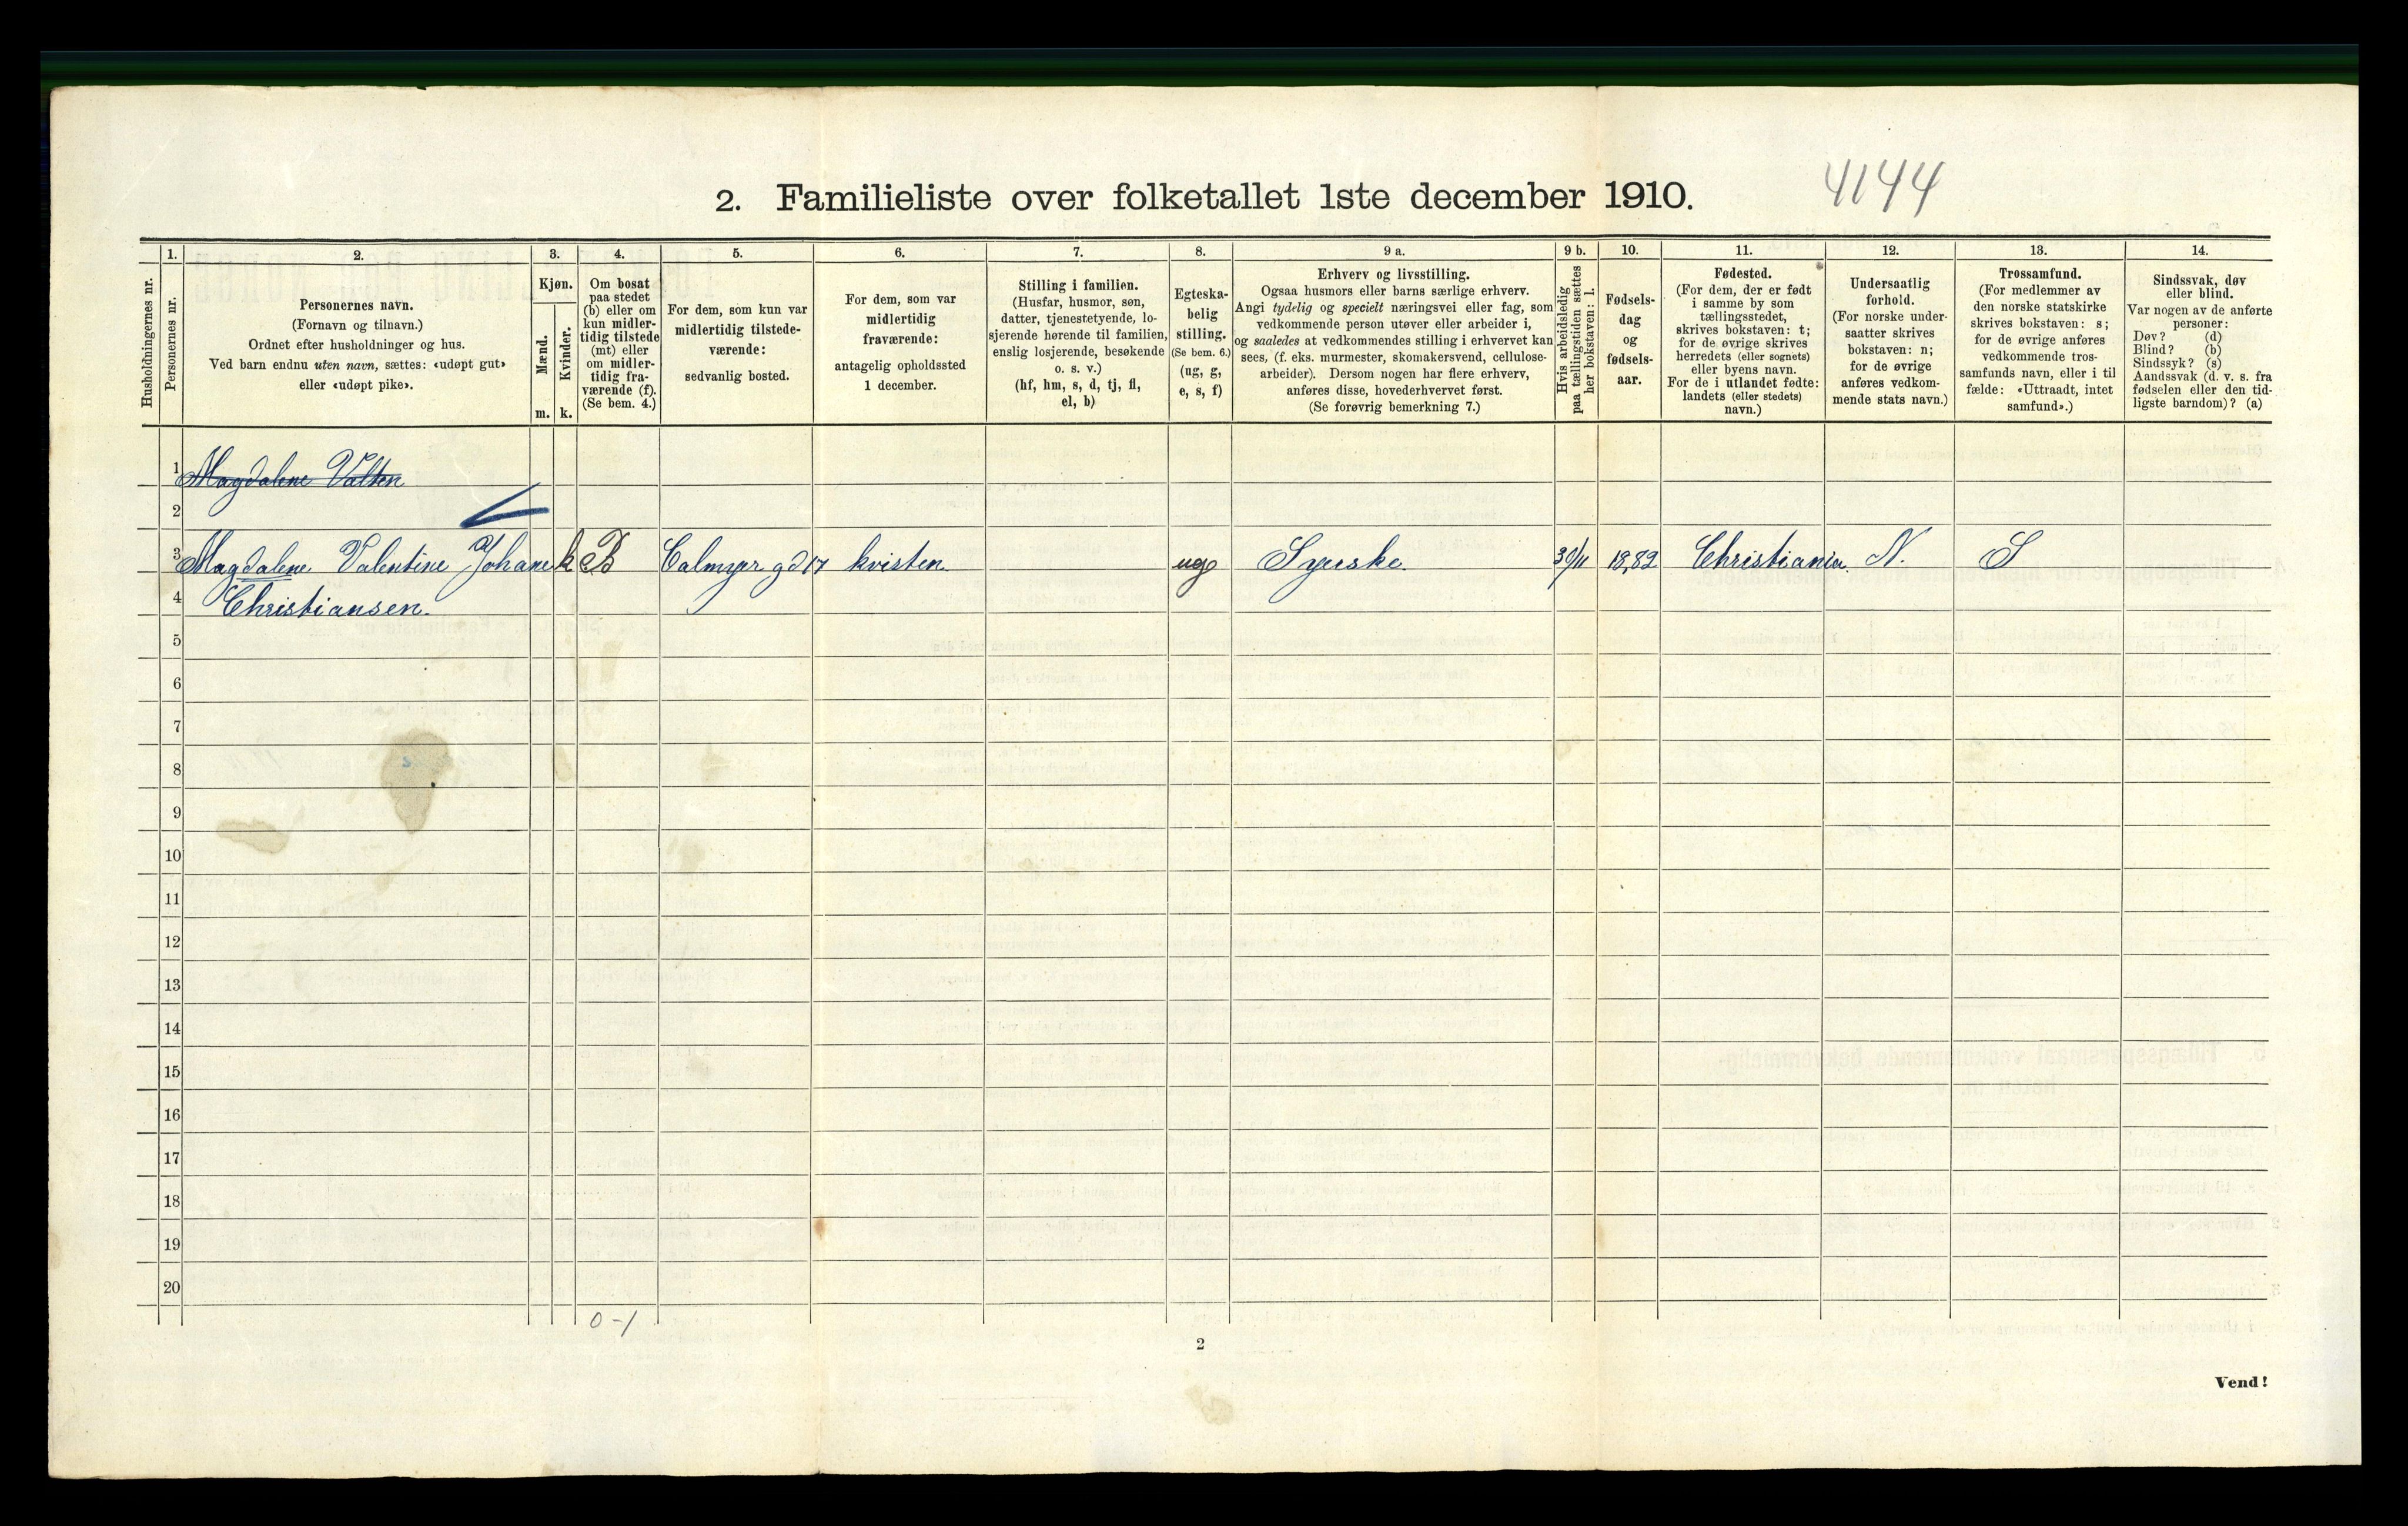 2. Familieliste over folketallet 1ste december 1910.
4144
Husholdningernes nr.
1.
Personernes nr.
2.
Personernes navn.
(Fornavn og tilnavn.)
Ordnet efter husholdninger og hus.
Ved barn endnu uten navn, sættes: «udøpt gut»
eller «udøpt pike».
3.
Kjøn.
Mænd.
m.
Kvinder.
k.
4.
Om bosat
paa stedet
(b) eller om
kun midler-
tidig tilstede
(mt) eller
om midler-
tidig fra-
værende (f).
(Se bem. 4.)
5.
For dem, som kun var
midlertidig tilstede-
værende:
sedvanlig bosted.
6.
For dem, som var
midlertidig
fraværende:
antagelig opholdssted
1 december.
7.
Stilling i familien.
(Husfar, husmor, søn,
datter, tjenestetyende, lo-
sjerende hørende til familien,
enslig losjerende, besøkende
o. s. v.)
(hf, hm, s, d, tj, fl,
el, b)
8.
Egteska-
belig
stilling.
(Se bem. 6.)
(ug, g,
e, s, f)
9 a.
Erhverv og livsstilling.
Ogsaa husmors eller barns særlige erhverv.
Angi tydelig og specielt næringsvei eller fag, som
vedkommende person utøver eller arbeider i,
og saaledes at vedkommendes stilling i erhvervet kan
sees, (f. eks. murmester, skomakersvend, cellulose-
arbeider). Dersom nogen har flere erhverv,
anføres disse, hovederhvervet først.
(Se forøvrig bemerkning 7.)
9 b.
Hvis arbeidsledig
paa tællingstiden sættes
her bokstaven: l.
10.
Fødsels-
dag
og
fødsels-
aar.
11.
Fødested.
(For dem, der er født
i samme by som
tællingsstedet,
skrives bokstaven: t;
for de øvrige skrives
herredets (eller sognets)
eller byens navn.
For de i utlandet fødte:
landets (eller stedets)
navn.)
12.
Undersaatlig
forhold.
(For norske under-
saatter skrives
bokstaven: n;
for de øvrige
anføres vedkom-
mende stats navn.)
13.
Trossamfund.
(For medlemmer av
den norske statskirke
skrives bokstaven: s;
for de øvrige anføres
vedkommende tros-
samfunds navn, eller i til
fælde: «Uttraadt, intet
samfund».)
14.
Sindssvak, døv
eller blind.
Var nogen av de anførte
personer:
Døv? (d)
Blind? (b)
Sindssyk? (s)
Aandssvak (d. v. s. fra
fødselen eller den tid-
ligste barndom)? (a)
1 Magdalene Valten
2
3 Magdalene Valentine Johane k B Calmyr gd 17 kvisten ug Syerske. 30/11 1882 Christiania. N. S
4 Christiansen.
5
6
7
8
9
10
11
12
13
14
15
16
17
18
19
20
0-1
2
Vend!